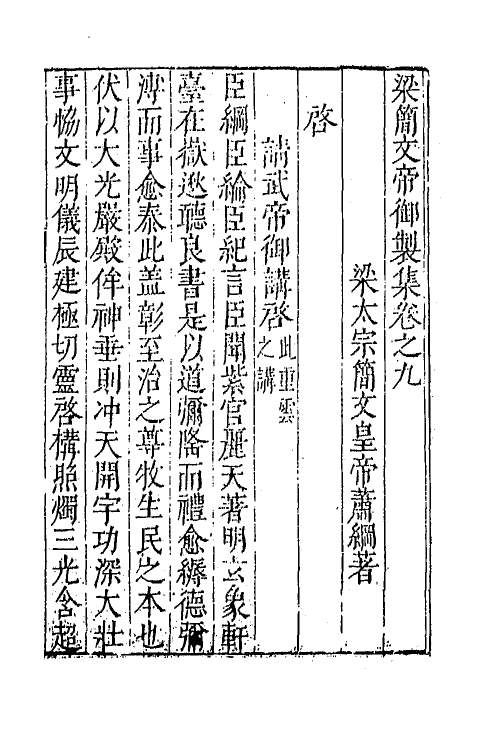 梁簡文帝御製集卷之九
梁太宗簡文皇帝蕭綱著
啓
請武帝御講啓此重雲之講
臣綱臣綸臣紀言臣聞紫宫麗天著明玄象軒
臺在嶽逖聽良書是以道彌隆而禮愈縟德彌
溥而事愈泰此盖彰至治之尊牧生民之本也
伏以大光嚴殿侔神垂則冲天開宇功深大壯
事恊文明儀辰建極切靈啓構照燭三光含超